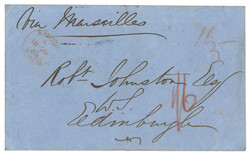 via Marseilles
Robt. Johnston Esq
W.S.
Edinburgh